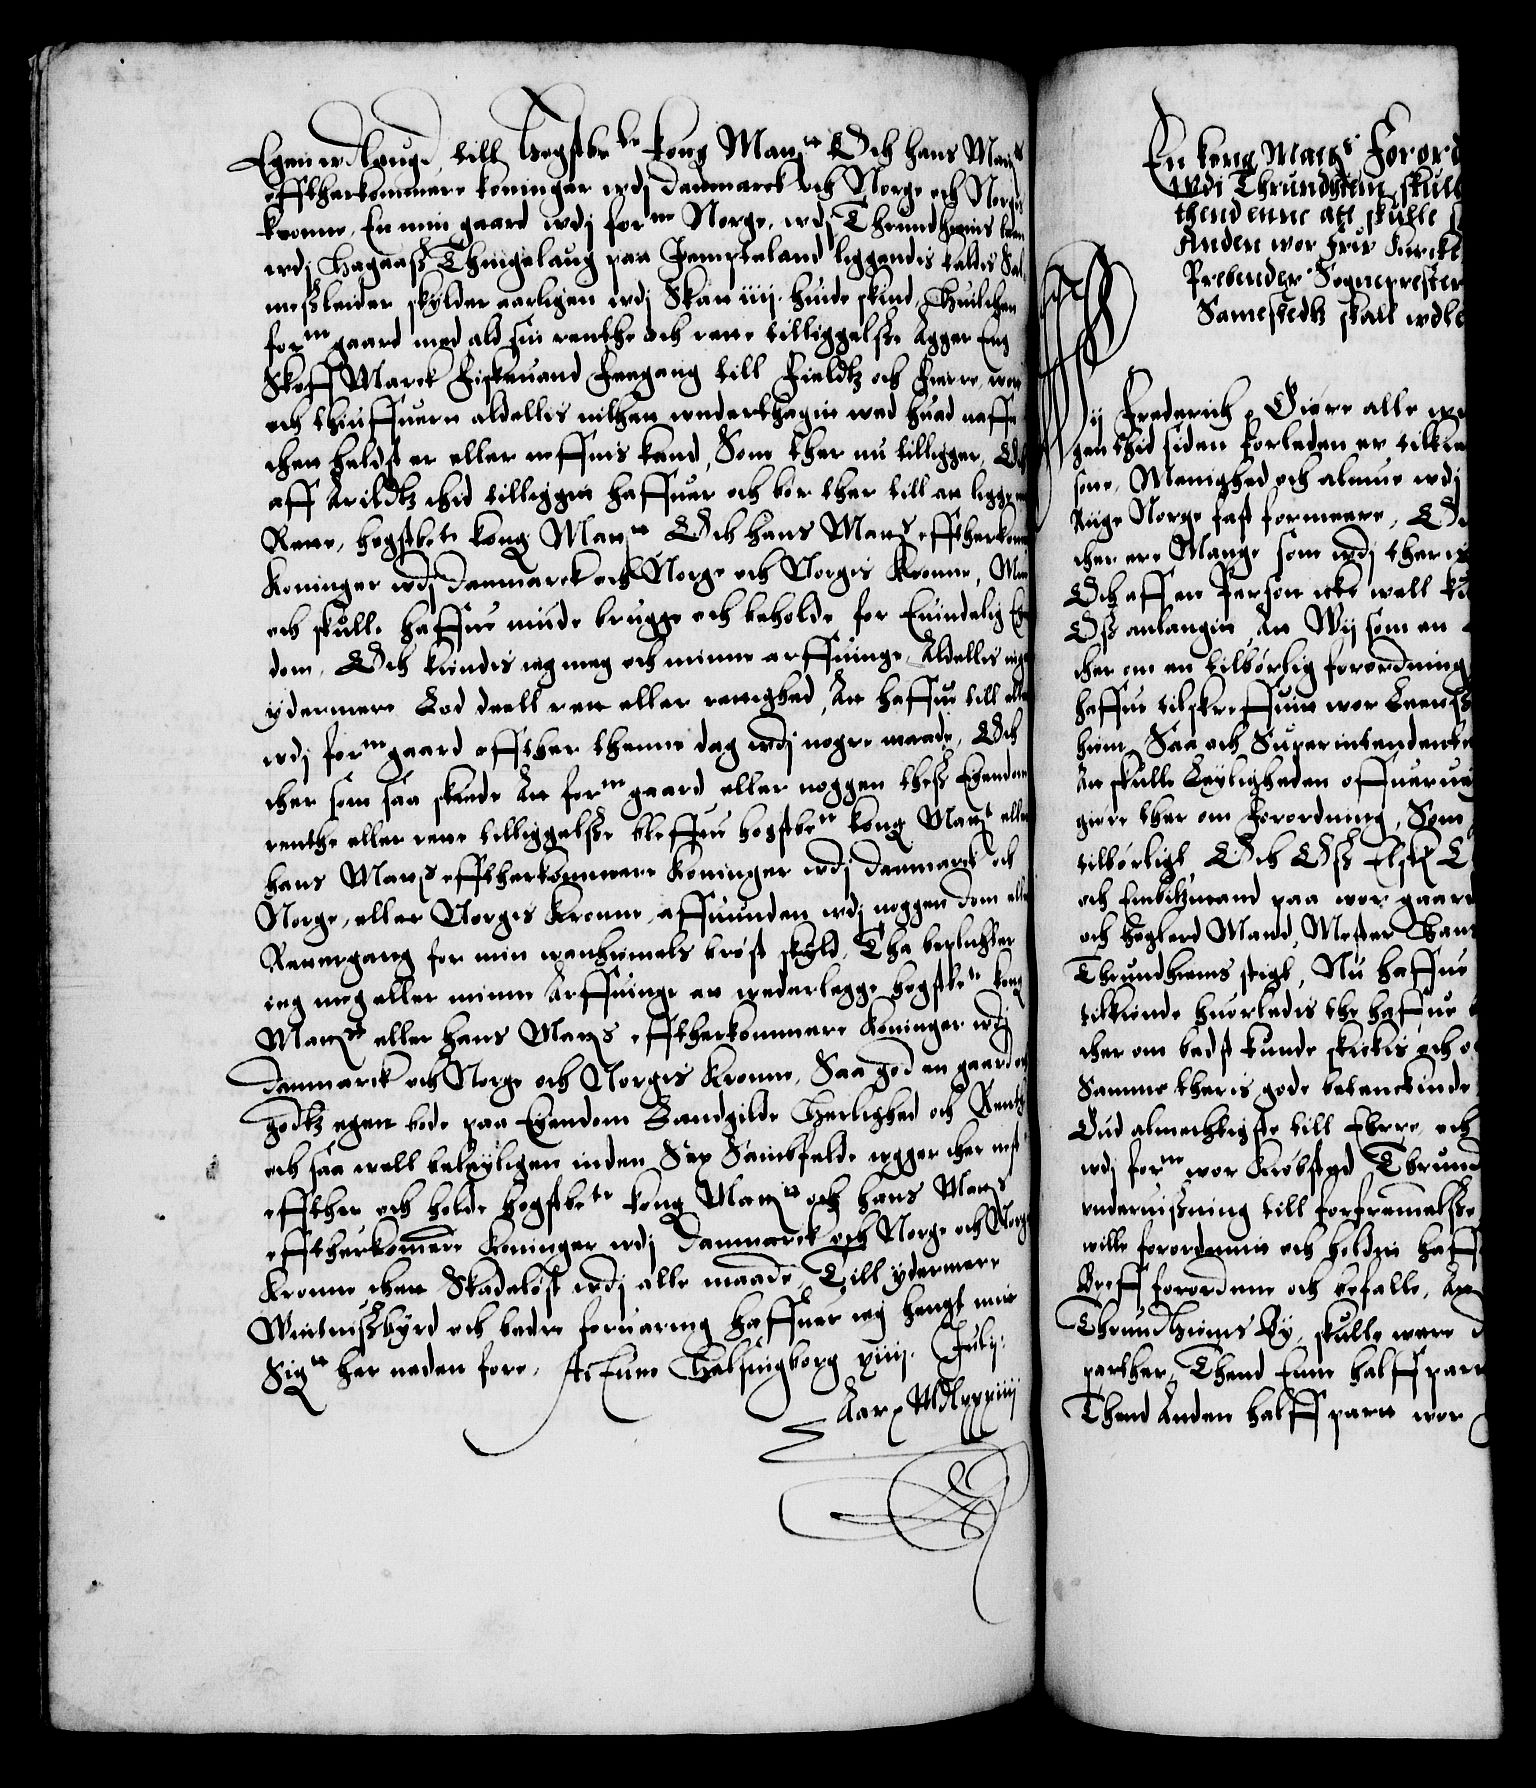 Egen wdlaugd, till Høgstbete kong Matz Och hans Matz
efftherkommere koningar wdj Danmarck och Norge och Norgis
kronne, En min gaard wdj forne Norge, wdj Thrundhiems leen
wdj Hagaass Thingelaug paa Jempteland liggendis kaldis Sal
messleider skylder aarligen wdj Skan iiij huide skind, Huilchen
forne gaard med ald sin renthe och rette tilliggelsse Agger Eng
Skoff Marck Fiskeuand Feegang till Fieldtz och Fierre, wott
och thiuffuert aldellis inthen wnderthagin wed huad naffn
thett heldst er eller neffnis kand, Som ther nu tilligger, Och
aff Arildtz thid tilliggett haffuer och bør ther till att ligge mett
Rette, høgstbete kong Matz Och hans Matz efftherkom
Koninger wdj Danmarck och Norge och Norgis Kronne, Mue
och skulle haffue niude brugge och beholde for Euindelig Eyen
dom, Och kiendis ieg meg och minne arffuinge Aldellis ingen
ydermere Lod deell rett eller rettighed, Att haffue till eller
wdj forne gaard effther thenne dag wdj nogre maade, Och
ther som saa skeede Att forne gaard eller noggen thess Eyendom
renthe eller rette tilliggelsse bleffue høgstbete kong Matz eller
hans Matz efftherkommere Koninger wdj Danmarck och
Norge, eller Norgis Kronne, affuunden wdj noggen dom eller
Rettergang for min wanhiemels brøst skyld, Tha beplichter
ieg meg eller minne Arffuinge att wederlegge høgstbete kong
Matz eller hans Matz efftherkommere Koninger wdj
Danmarck och Norge och Norgis Kronne, Saa god en gaard och
godtz egen bode paa Eyendom Landgilde Herlighed och Renthe
och saa well beleyligen inden Sex Sambfelde wgger ther nest
effther och holde høgstbete kong Matz och hans Matz
efftherkomere Koninger wdj Danmarck och Norge och Norgis
Kronne thett Skadeløst wdj alle maade, Till ydermere
Widnissbyrd och bedre foruaring haffuer ieg hengt mit
Signet her neden fore, Actum Helsingborg xiiij Julij
Aar MDlxxxiiij
En kong Matz Forord
Wdi Thrundhiem, skulle
thend enne att skulle
Anden wor Frue Kircke
Prebender Sogneprester
Samestedtz skall wdle
Wij Frederich Giøre alle wit
gen thid siden forleden er tilkie
sine, Menighed och almue wdj
Riige Norge fast formeere, Och
ther ere Mange som wdj theris
Och aff en Person icke well kan
Oss anlangit, Att Wij som en
ther om en tilbørlig forordning
haffue tilskreffuitt wor Leenss
hiem, Saa och Superintendenten
Att skulle Leyligheden offueruey
giøre ther om Forordning, Som
tilbørligt, Och Oss Elsk
och Embitzmand paa wor gaard
och høglerd Mand, Mester Hans
Thrundhiems stigt, Nu haffue
tilkiende huorledis the haffue
ther om bedst kunde skickis och
Samme theris gode betenckinde
Gud almechtigste till Ehre, och
wdj forne wor Kiøbsted Thrund
vnderuissning till forfremelsse
wille forordnitt och holdett haff
Breff forordne och befalle, Att
Thrundhiems By, skulle were
parther, Thend Enne halff part
Thend Anden halff partt wor